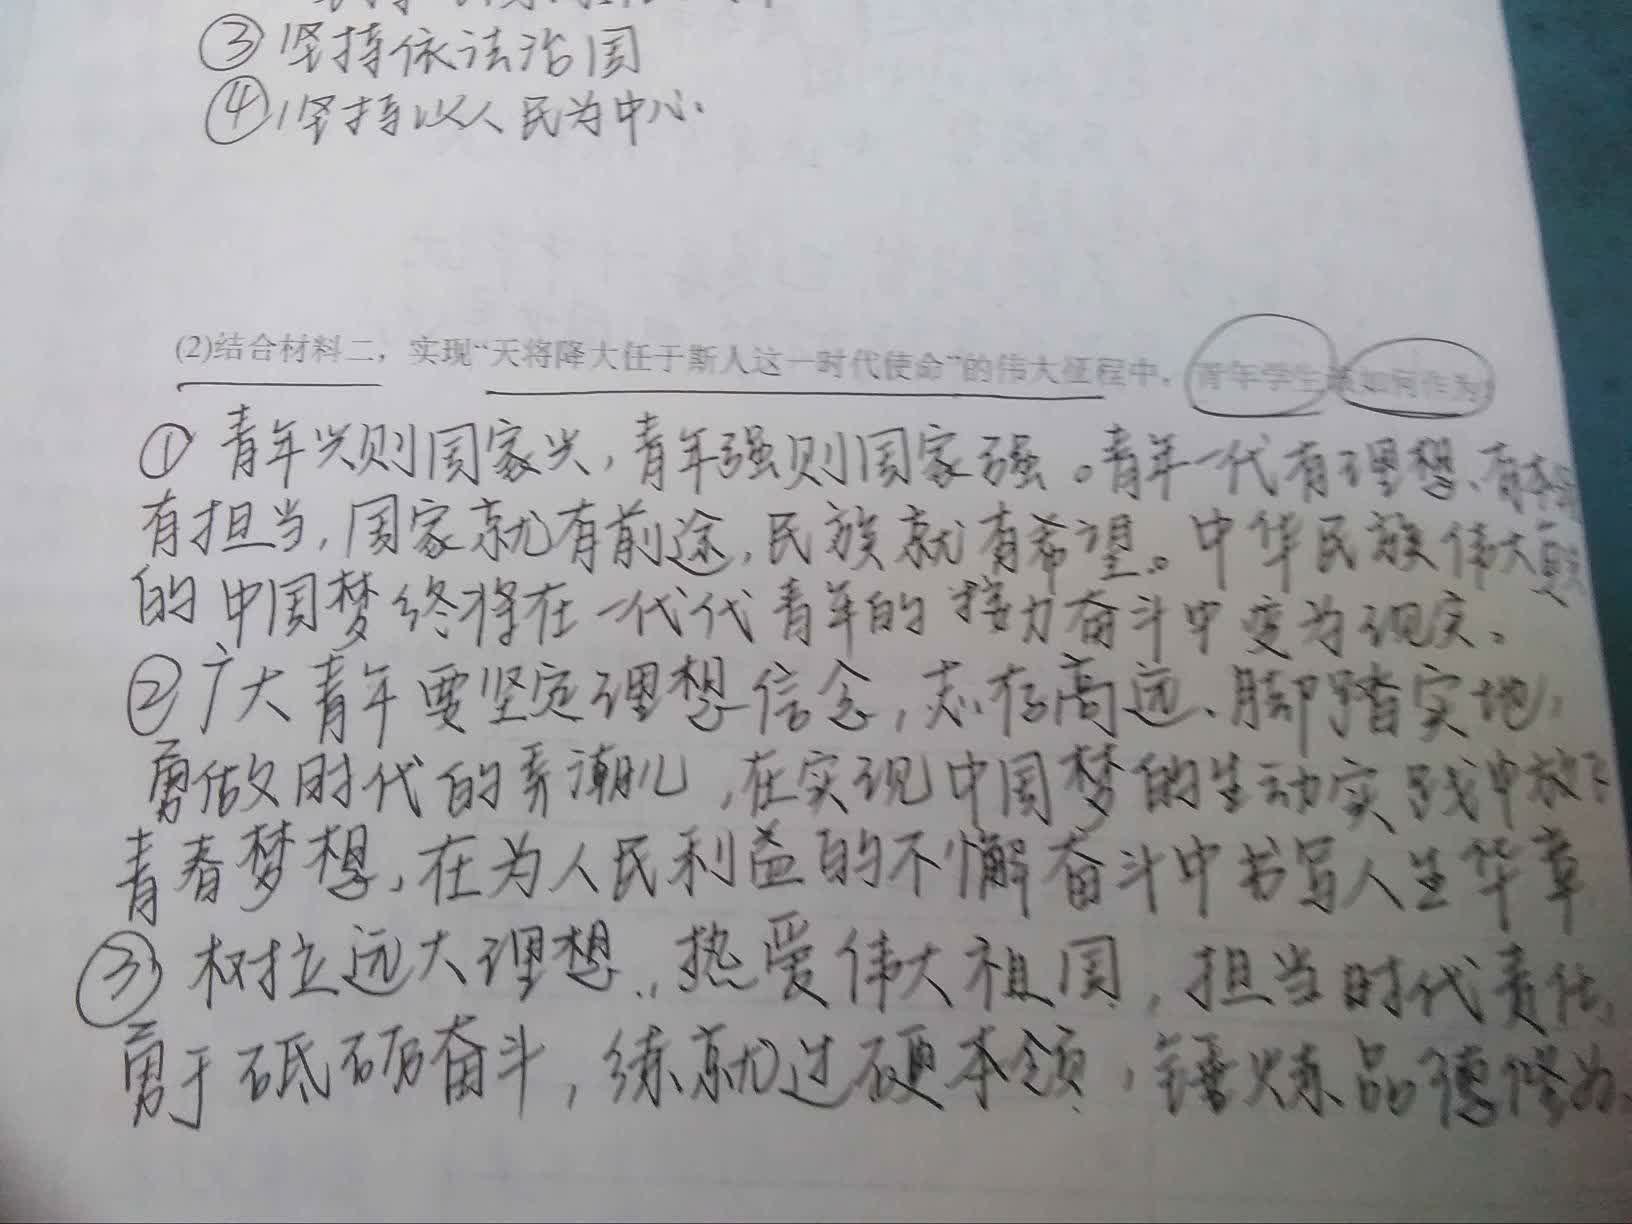 ③坚持依法治国
④坚持以人民为中心
(2)结合材料二，实现“天将降大任于斯人这一时代使命”的伟大征程中，青年学生该如何作为
①青年兴则国家兴，青年强则国家强。青年一代有理想、有本
有担当，国家就有前途，民族就有希望。中华民族伟大复
的中国梦终将在一代代青年的接力奋斗中变为现实。
②广大青年要坚定理想信念，志存高远、脚踏实地，
勇做时代的弄潮儿，在实现中国梦的生动实践中放飞
青春梦想，在为人民利益的不懈奋斗中书写人生华章
③树立远大理想，热爱伟大祖国，担当时代责任，
勇于砥砺奋斗，练就过硬本领，锤炼品德修为。